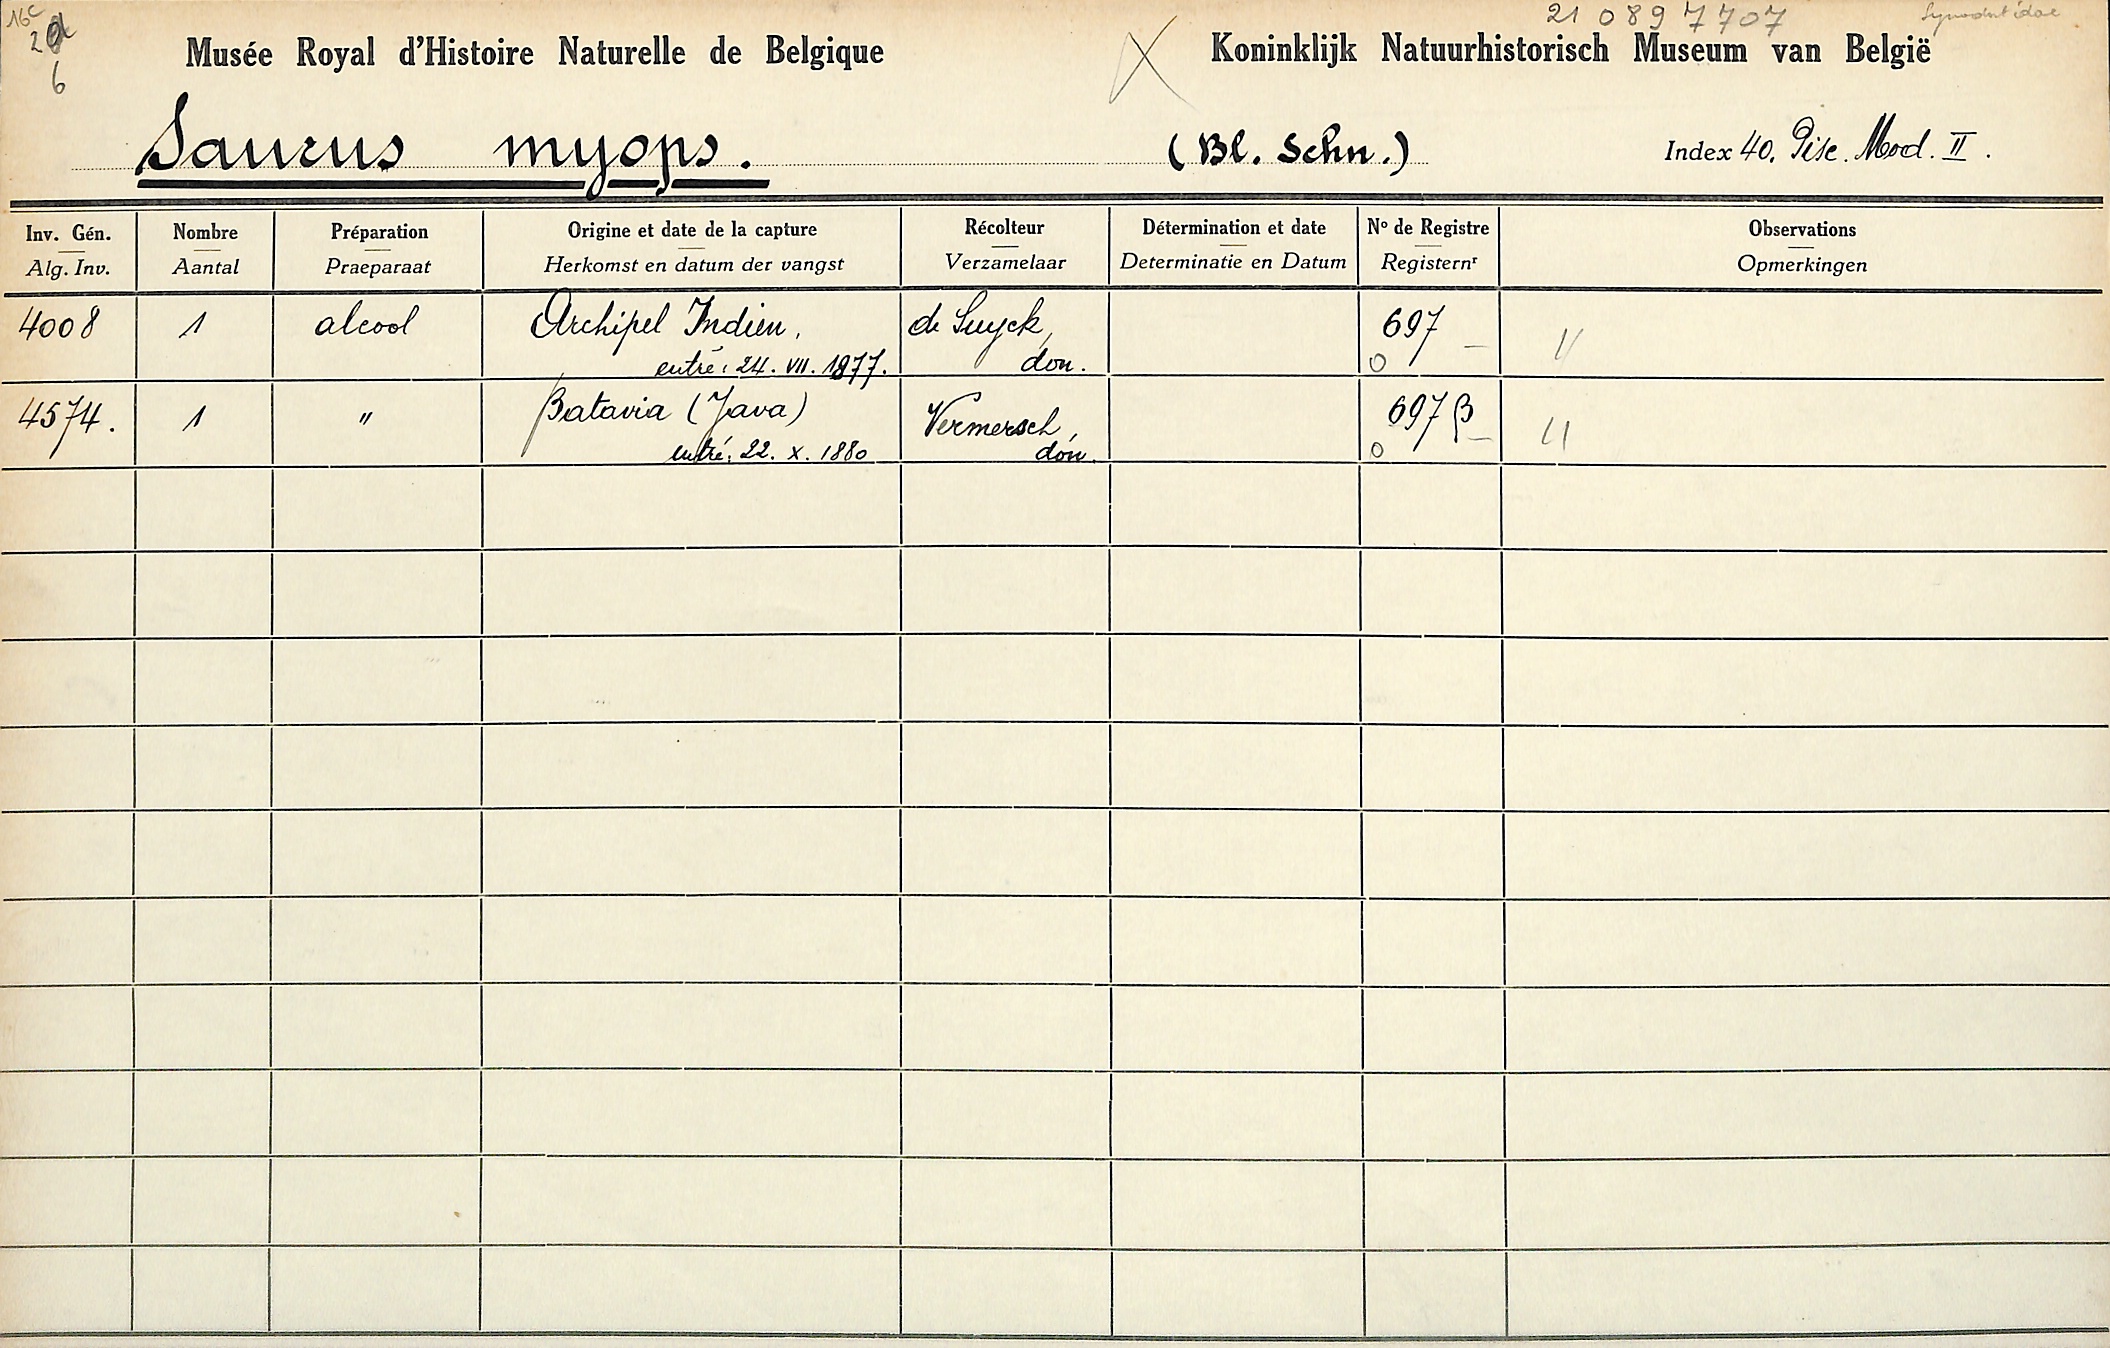 16c
2
6
21 0897707
Synodontidae
Musée Royal d'Histoire Naturelle de Belgique
Koninklijk Natuurhistorisch Museum van België
Saurus myops. (Bl. Schn.) Index 40. Pisc. Mod. II.
Inv. Gén. Nombre Préparation Origine et date de la capture Récolteur Détermination et date No de Registre Observations
Alg. Inv. Aantal Praeparaat Herkomst en datum der vangst Verzamelaar Determinatie en Datum Registernr Opmerkingen
4008 1 alcool Archipel Indien, de Suyck, 697 _ //
entré: 24. VII. 1877. don. o
4574. 1 " Batavia (Java) Vermersch, 697 β _ //
entré: 22. X. 1880 don. o